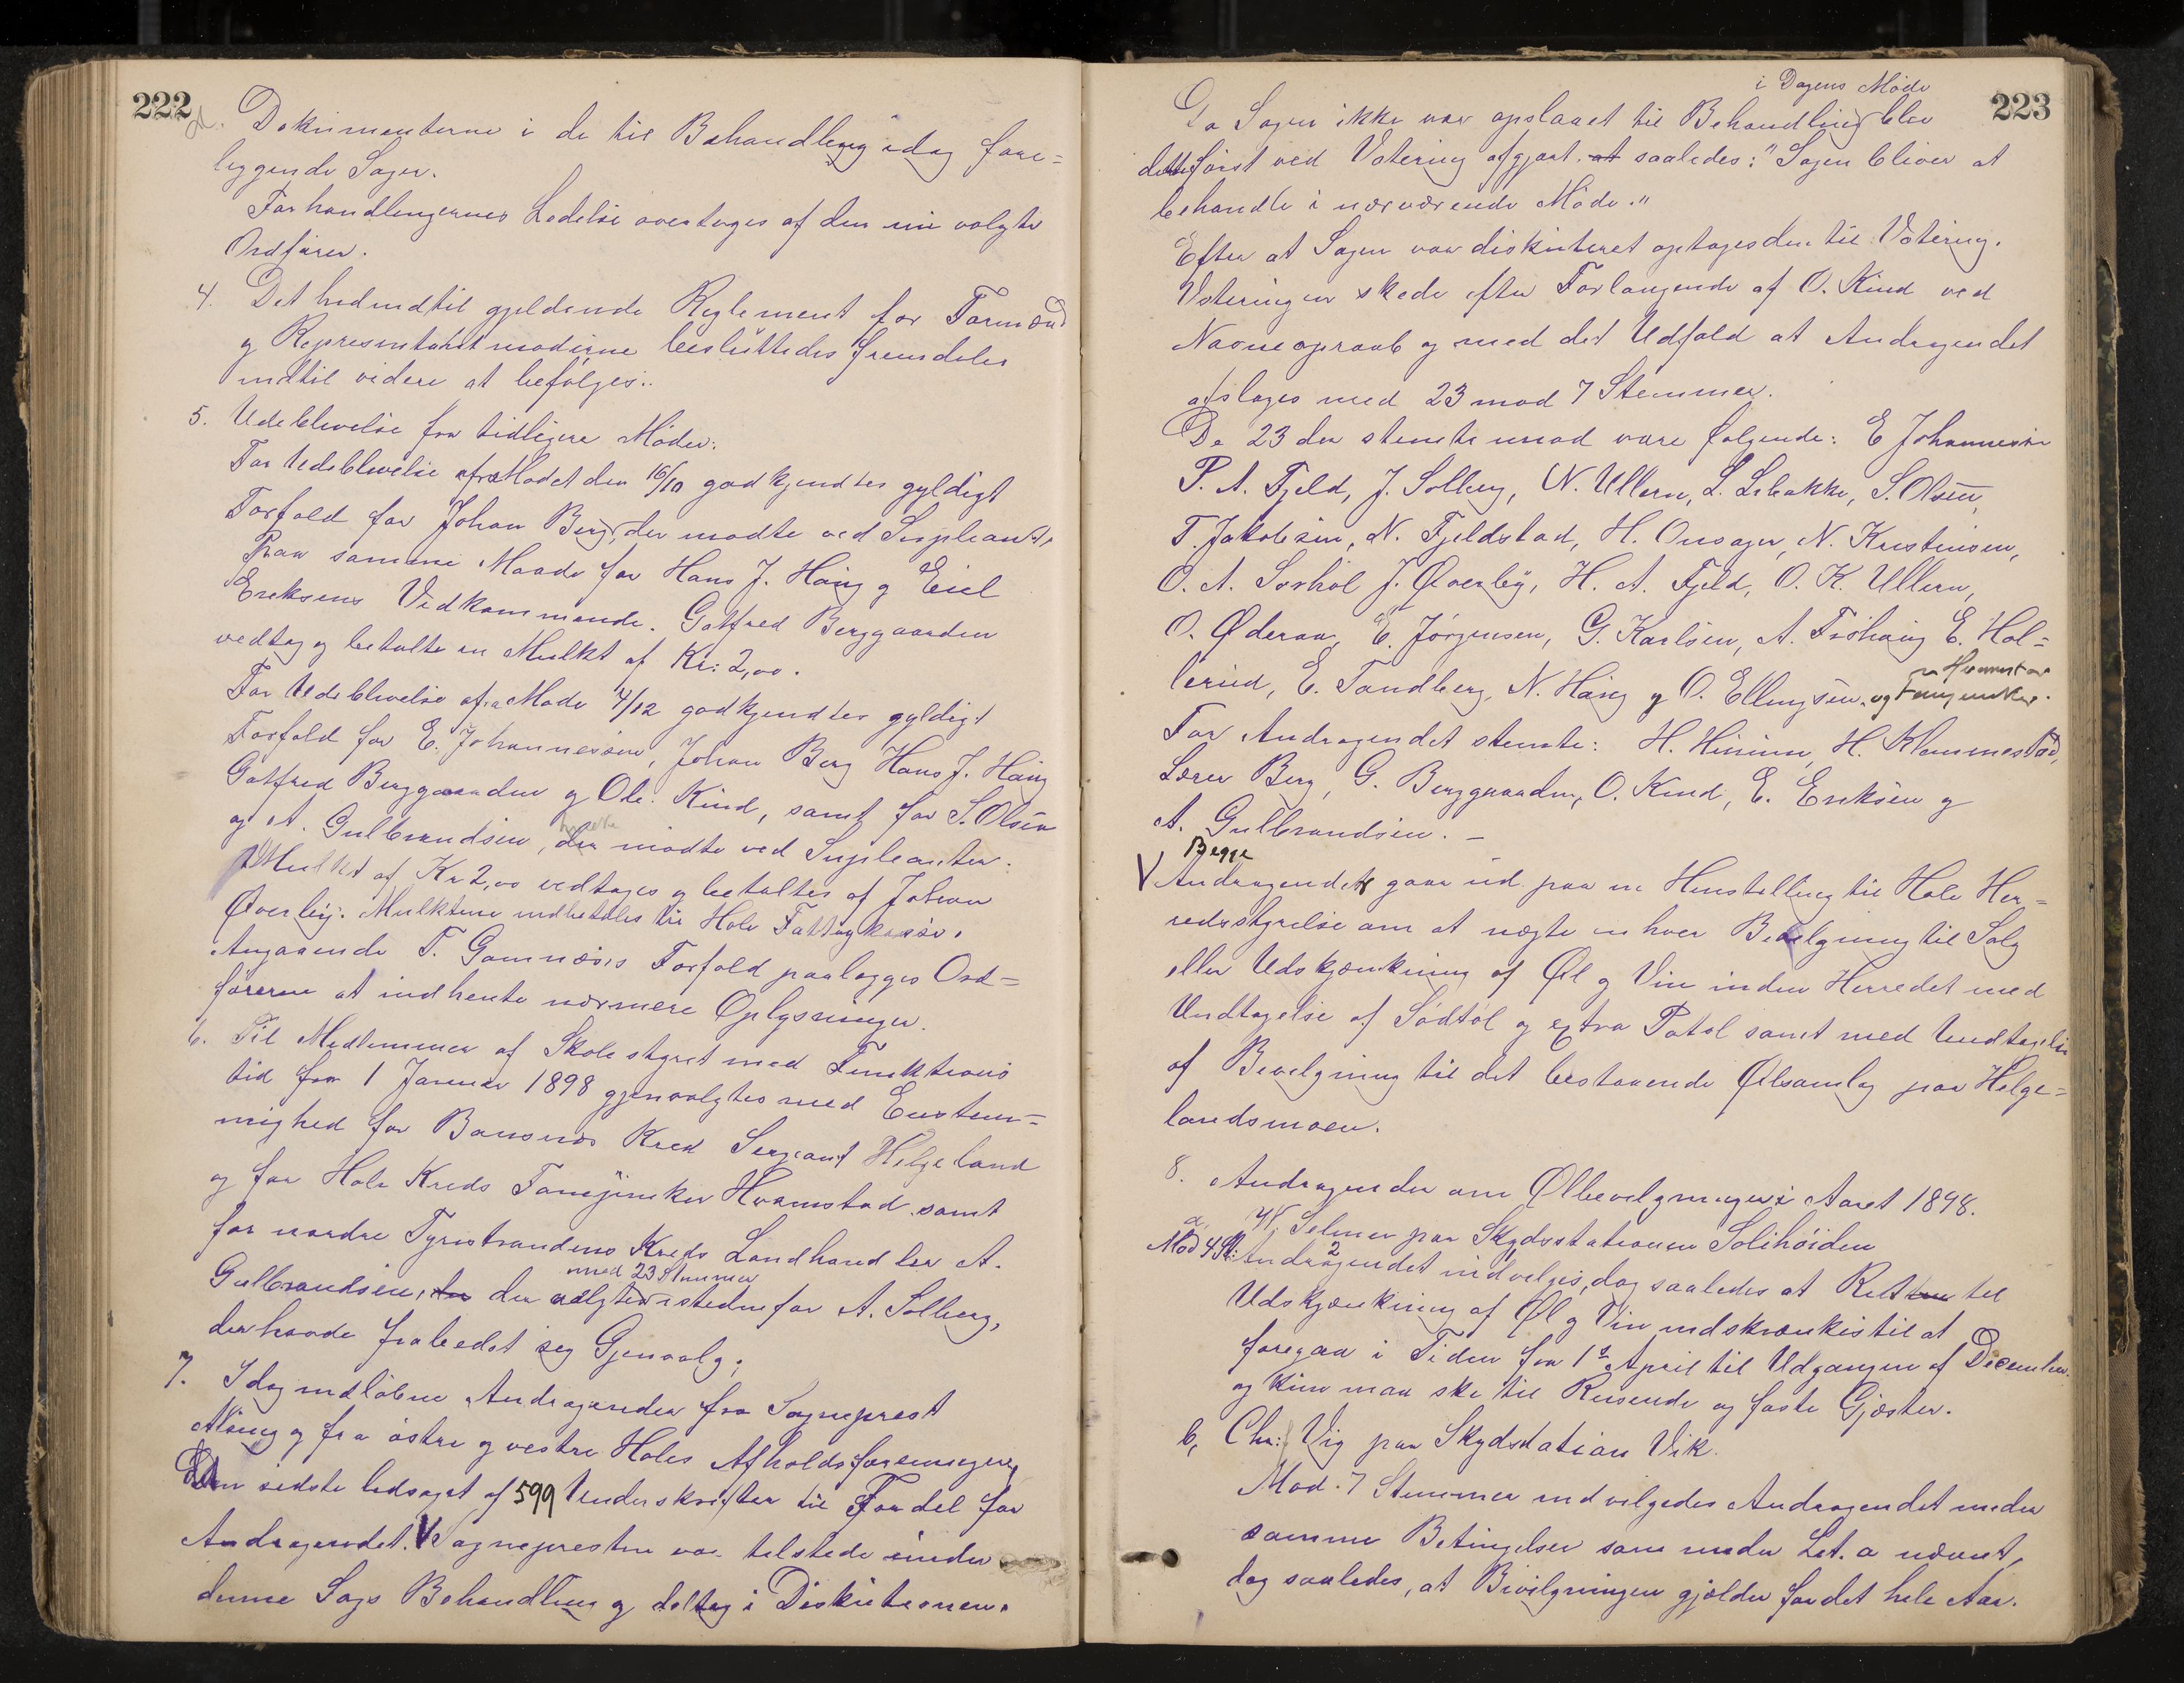 222
Dokumenterne i de til Behandling idag fore=
liggende Sager.
Forhandlingernes Ledelse overtoges af den ny valgte
Ordfører.
4. Det hidindtil gjeldende Reglement for Formænd
og Representantmøderne besluttedes fremdeles
indtil videre at befølges.
5. Udeblivelse fra tidligere Møder.
For Udeblivelse fra Mødet den 16/10 godkjendtes gyldigt
Forfald for Johan Berg, der mødte ved Supleant,
Paa samme Maade for Hans J. Haug og Eiel
Eriksens Vidkommende. Gotfred Berggaarden
vedtog og betalte en Mulkt af Kr: 2,00.
For Udeblivelse fra Møde 4/12 godkjendtes gyldigt
Forfald for E. Johannesen, Johan Berg Hans J. Haug
Gotfred Berggaarden og Ole Kind, samt for S. Olsen
og A. Gulbrandsen, der mødte ved Supleanter.
Mulkt af Kr 2,00 vedtoges og betaltes af Johan
Øverby. Mulkterne indbetales til Hole Fattigkasse.
Angaaende T. Gomnæs's Forfald paalægges Ord=
føreren at indhente nærmere Oplysninger.
6. Til Medlemmer af Skolestyret med Funktions
tid fra 1 Januar 1898 gjenvalgtes med Enstem=
mighed for Bønsnæs Kred Sergeant Helgeland
og for Hole Kreds Fanejunker Hvamstad samt
for nordre Tyristrandens Kreds Landhandler A.
med 23 Stemmer
Gulbrandsen, der valgtes istedenfor A. Solberg,
der havde frabedet sig Gjenvalg.
7. Idag indløbne Andragender fra Sogneprest
Alsing og fra østre og vestre Holes Afholdsforeninger,
Den sidste ledsaget af 599 Underskrifter til Fordel for
Andragendet. V Sognepresten var tilstede under
denne Sags Behandling og deltog i Diskutionen.
223
i Dagens Møde
Da Sagen ikke var opslaaet til Behandling blev
dette først ved Votering afgjort at saaledes: "Sagen bliver at
behandle i nærværende Møde."
Efter at Sagen var diskuteret optoges den til Votering.
Voteringen skede efter Forlangende af O. Kind ved
Navneopraab og med det Udfald at Andragendet
afsloges med 23 mod 7 Stemmer.
De 23 der stemte imod vare følgende: E Johannesen
P. A. Fjeld, J. Solberg, N. Ullern, L. Lebakke, S. Olsen,
T. Jakobsen, N. Fjeldstad, H. Onsager, N. Kristensen,
O. A. Sørhol J. Øverby, H. A. Fjeld, O. K. Ullern,
O. Øderaa, E. Jørgensen, G. Karlsen, A. Frøhaug E. Hol=
lerud, E. Tandberg, N. Haug og O. Ellingsen. og Fanejunker
Hvamstad.
For Andragendet stemte: H. Hinum, H. Klammestad,
Lærer Berg, G. Berggaarden, O. Kind, E. Eriksen og
A. Gulbrandsen. —
Begge
V Andragender gaar ud paa en Henstilling til Hole Her=
redsstyrelse om at nægte enhver Bevilgning til Salg
eller Udskjænkning af Øl og Vin inden Herredet med
Undtagelse af Sødtøl og Extra Potøl samt med Undtagelse
af Bevilgning til det bestaaende Ølsamlag paa Helge=
landsmoen.
8. Andragender om Ølbevilgninger i Aaret 1898.
a. W. Selmer paa Skydsstationen Solihøiden
Mod 4 St: 2 Andragendet indvilges, dog saaledes at Retten til
Udskjænkning af Øl og Vin indskrænkes til at
foregaa i Tiden fra 1ste April til Udgangen af December
og kun maa ske til Reisende og faste Gjæster.
b, Chr: Vig paa Skydsstation Vik.
Mod 7 Stemmer indvilgedes Andragendet under
samme Betingelser som under Lit. a nævnt,
dog saaledes, at Bivilgningen gjælder for det hele Aar.